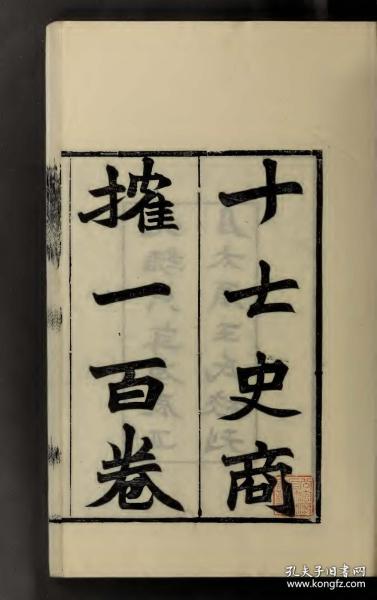 十士史商
搉一百卷
孔夫子旧书网
www.kongfz.com